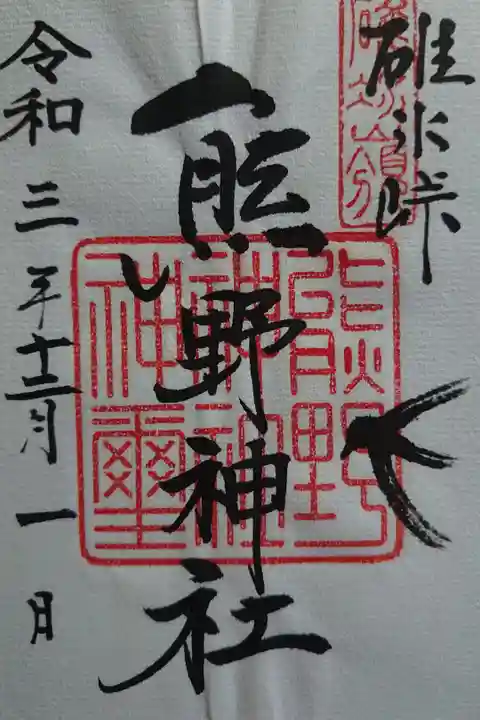 碓氷峠
熊野神社
令和三年十二月一日
碓氷嶺
熊野
神社
神璽